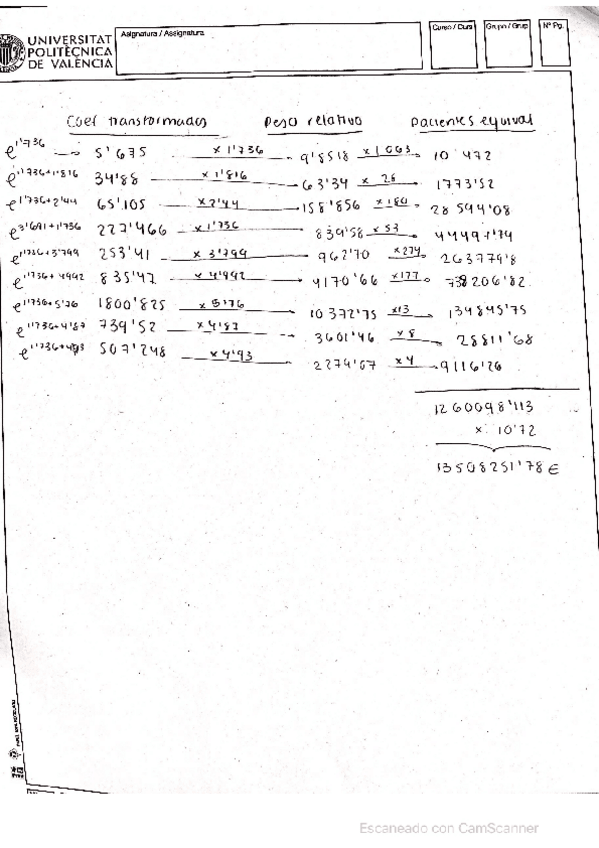 UNIVERSITAT
POLITÈCNICA
DE VALÈNCIA
Asignatura / Assignatura
Curso / Curs
Grupo / Grup
Nº Pg.
Coef transformados Peso relativo Pacientes equival
e^1'736 → 5'675 x 1'736 9'8518 x 1003 10 472
e^1'736+1'816 34'88 x 1'816 63'34 x 28 1773'52
e^1'736+2'44 65'105 x 2'44 158'856 x 180 28 594'08
e^3'691+1'736 227'466 x 1'736 839'58 x 53 44494'74
e^1'736+3'799 253'41 x 3'799 962'70 x 274 263779'8
e^1'736+4'992 835'47 x 4'992 4170'66 x 177 738206'82
e^1'736+5'76 1800'825 x 5'76 10372'75 x 13 134845'75
e^1'736+4'87 739'52 x 4'87 3601'46 x 8 28811'68
507'248 x 4'93 2279'07 x 4 9116'26
1260098'113
x 10'72
13508251'78 €
Escaneado con CamScanner